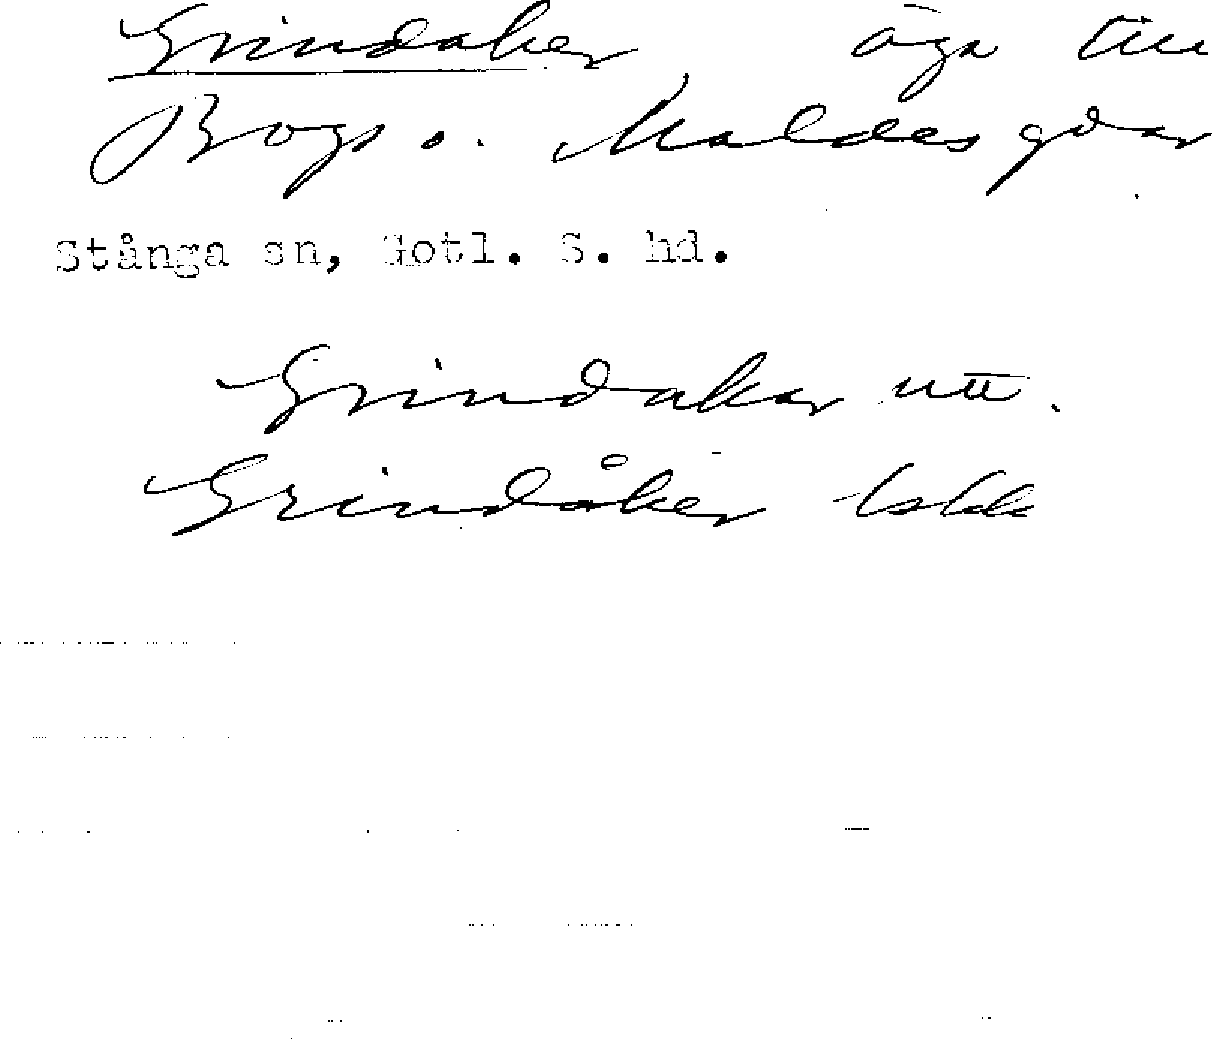 Grindaker, äga till
Bogs o. Maldes gdar
Stånga sn, Gotl. S. hd.
Grindakar utt.
Grindåker